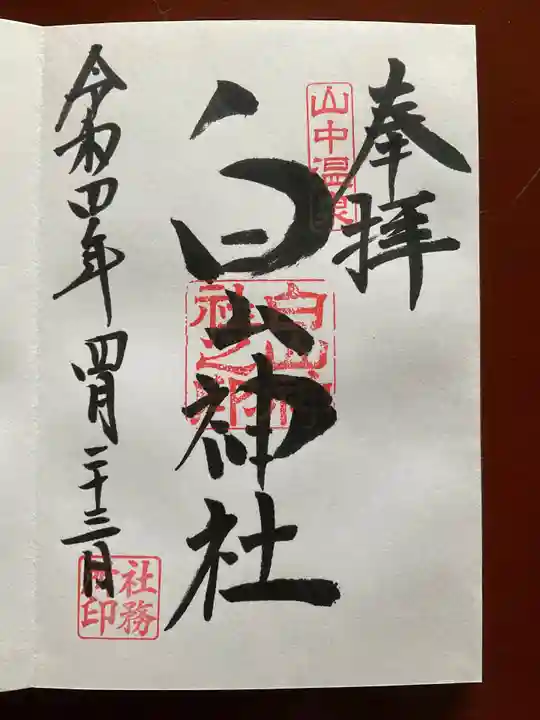 奉拝
山中温泉
白山神社
白山神社之印
令和四年四月二十三日
社務所印